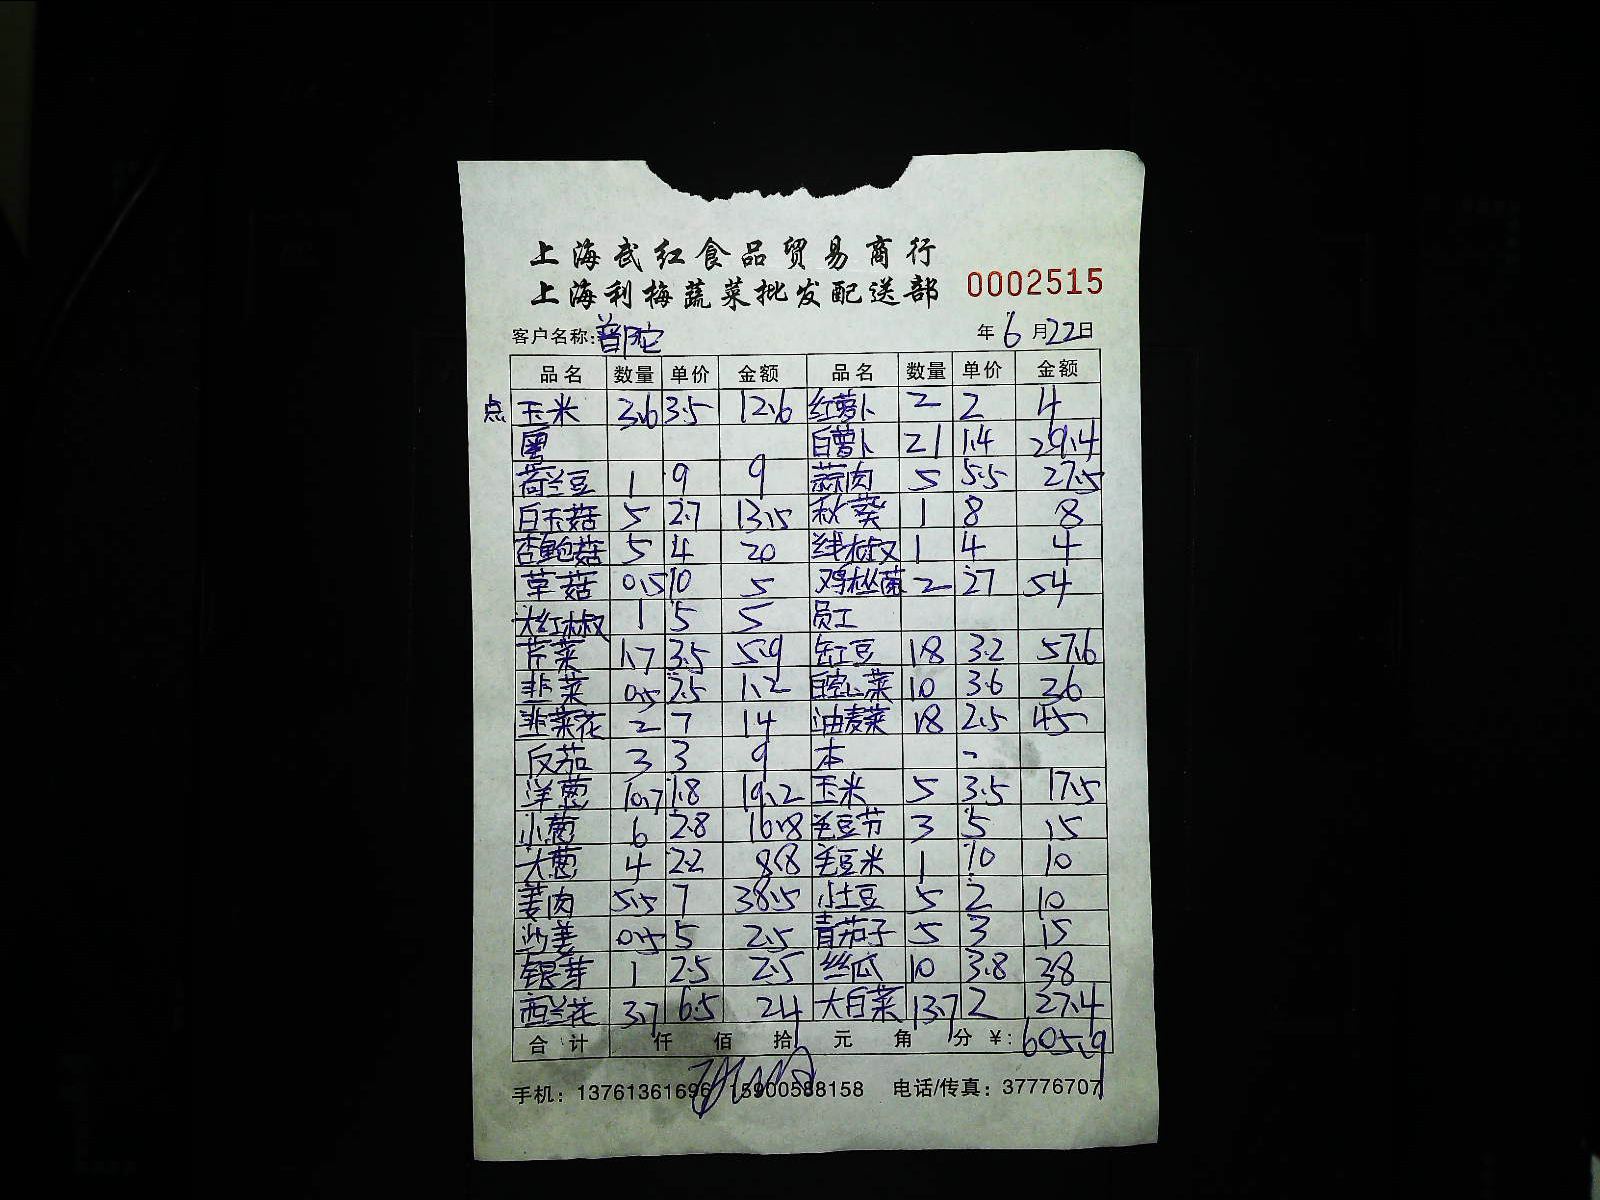 上海武红食品贸易商行
上海利梅蔬菜批发配送部 0002515
客户名称:普陀 年6月22日
品名 数量 单价 金额 品名 数量 单价 金额
点 玉米 3.6 3.5 12.6 红萝卜 2 2 4
粤 白萝卜 21 1.4 29.4
荷兰豆 1 9 9 蒜肉 5 5.5 27.5
白玉菇 5 2.7 13.5 秋葵 1 8 8
杏鲍菇 5 4 20 线椒 1 4 4
草菇 0.5 10 5 鸡枞菌 2 27 54
大红椒 1 5 5 员工
芹菜 1.7 3.5 5.9 缸豆 18 3.2 57.6
韭菜 0.5 2.5 1.2 空心菜 10 3.6 36
韭菜花 2 7 14 油麦菜 18 2.5 45
反茄 3 3 9 本
洋葱 10.7 1.8 19.2 玉米 5 3.5 17.5
小葱 6 2.8 16.8 毛豆节 3 5 15
大葱 4 2.2 8.8 毛豆米 1 10 10
姜肉 5.5 7 38.5 小土豆 5 2 10
沙姜 0.5 5 2.5 青茄子 5 3 15
银芽 1 2.5 2.5 丝瓜 10 3.8 38
西兰花 3.7 6.5 24 大白菜 13.7 2 27.4
合计 仟 佰 拾 元 角 分 ￥:605.9
手机：13761361696 15900588158 电话/传真：37776707